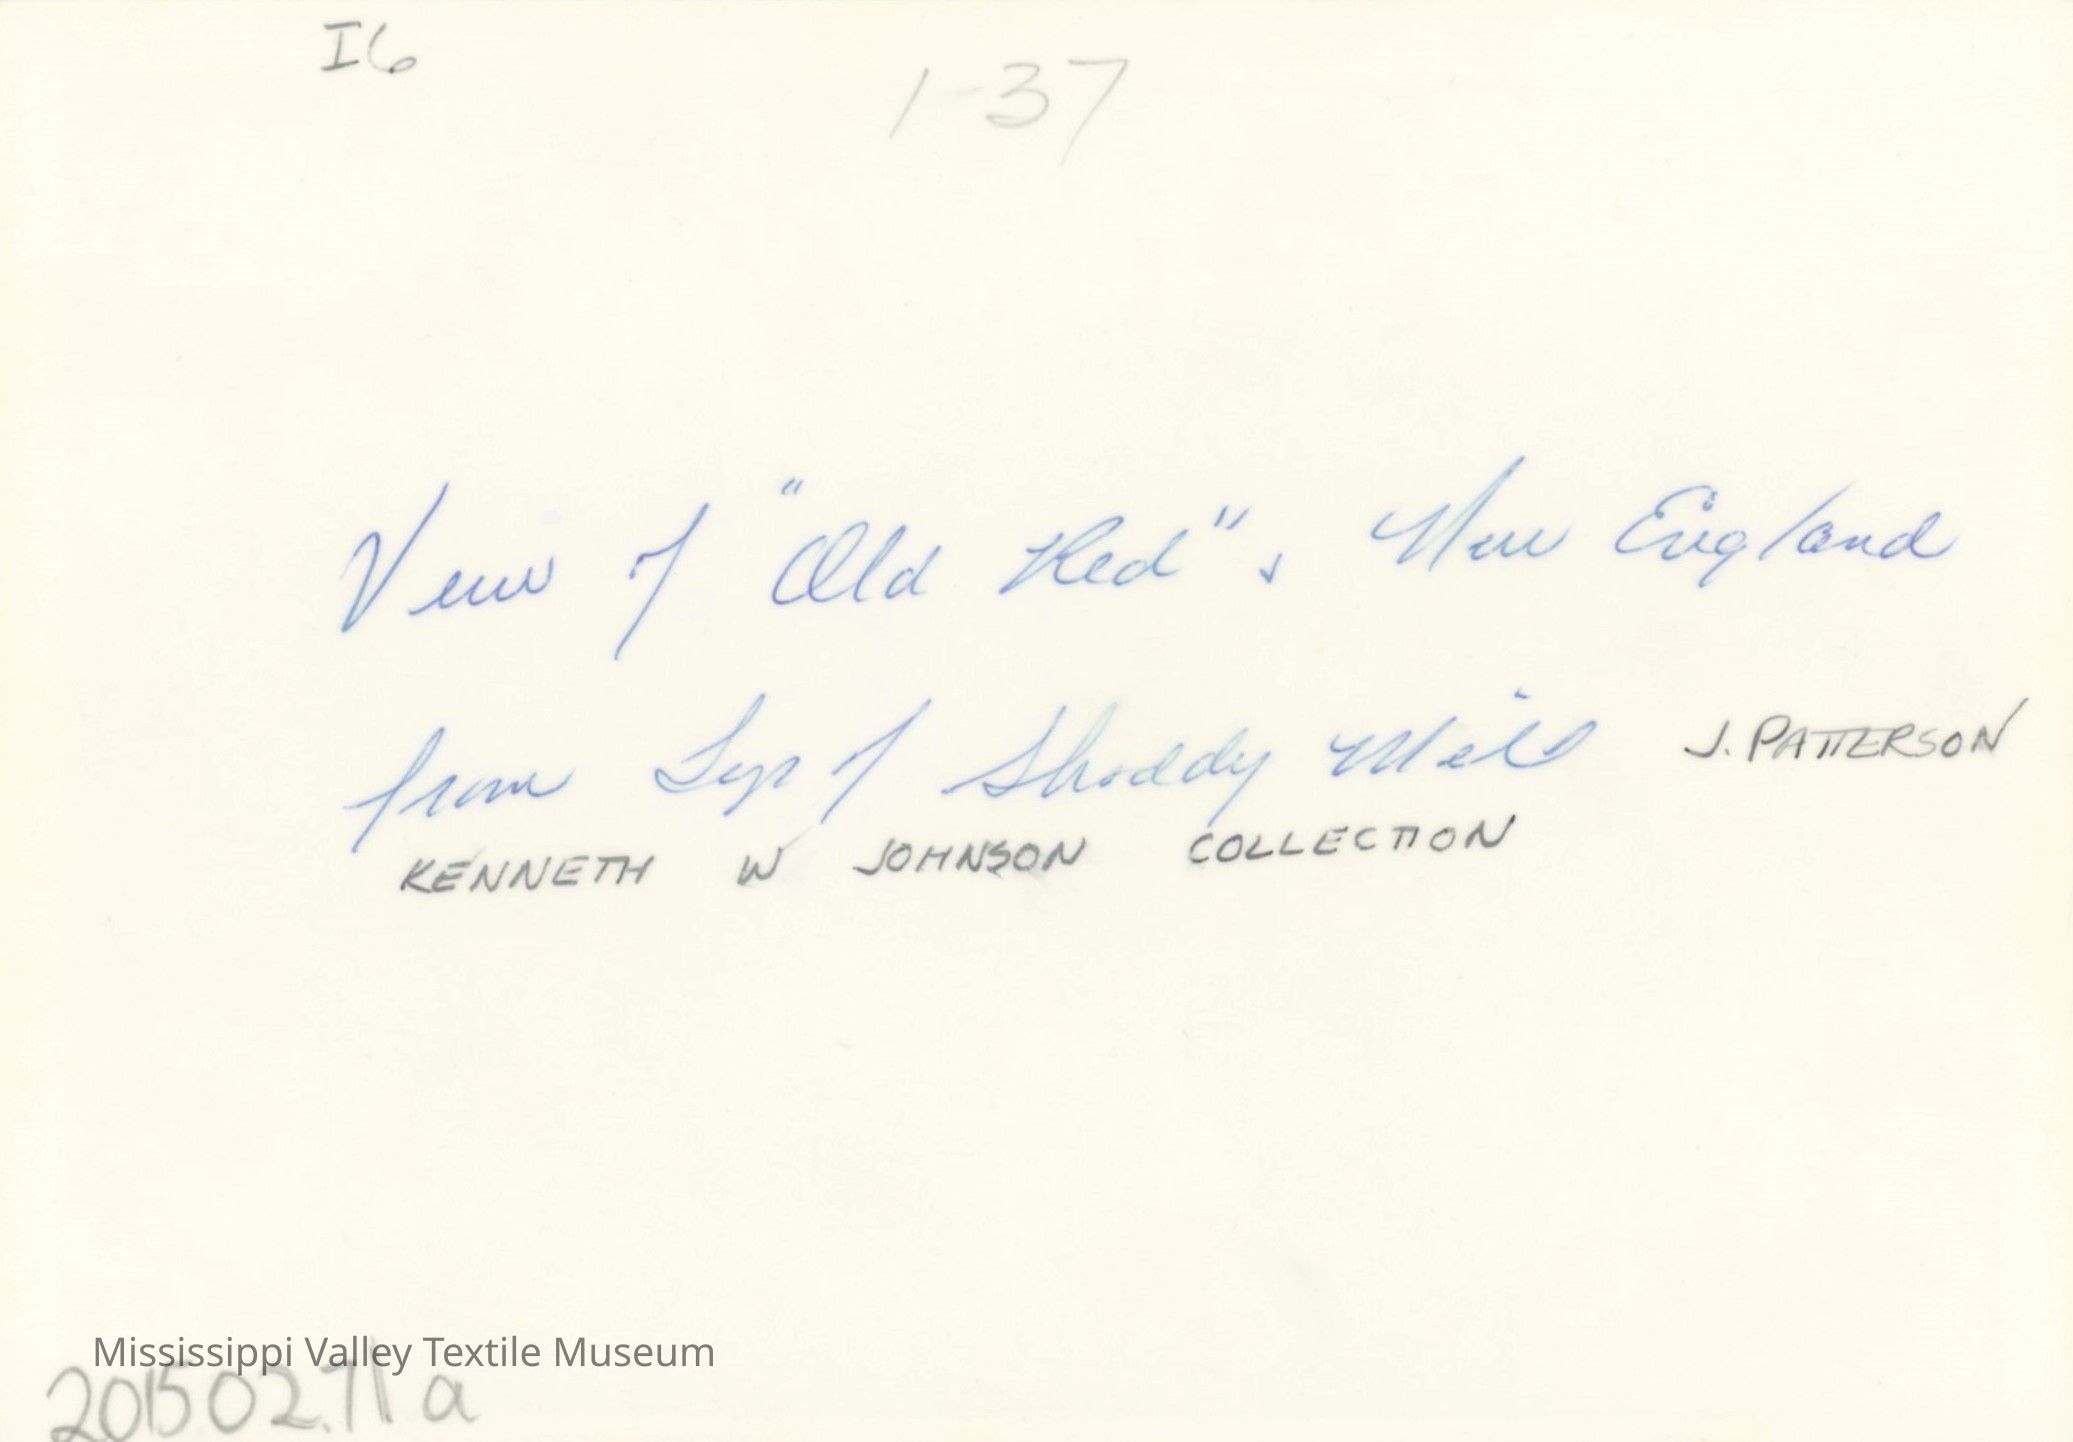 I6
1-37
View of "Old Red", New England
from Top of Shoddy Mill J. PATTERSON
KENNETH W JOHNSON COLLECTION
Mississippi Valley Textile Museum
201502.71 a